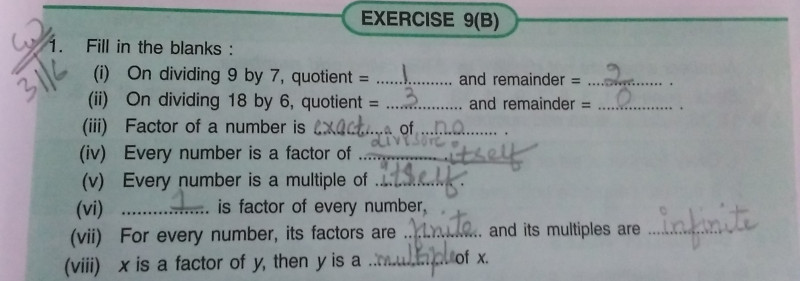 EXERCISE 9(B)
1. Fill in the blanks :
(i) On dividing 9 by 7, quotient = ......1.......... and remainder = ....2.......... .
(ii) On dividing 18 by 6, quotient = ....3.......... and remainder = ....0.......... .
(iii) Factor of a number is exact.... of ...no.......... .
divisore
(iv) Every number is a factor of .................. itself
(v) Every number is a multiple of itself.
(vi) ........1........ is factor of every number,
(vii) For every number, its factors are ..finite... and its multiples are ....infinite
(viii) x is a factor of y, then y is a ..multiple..of x.
3116